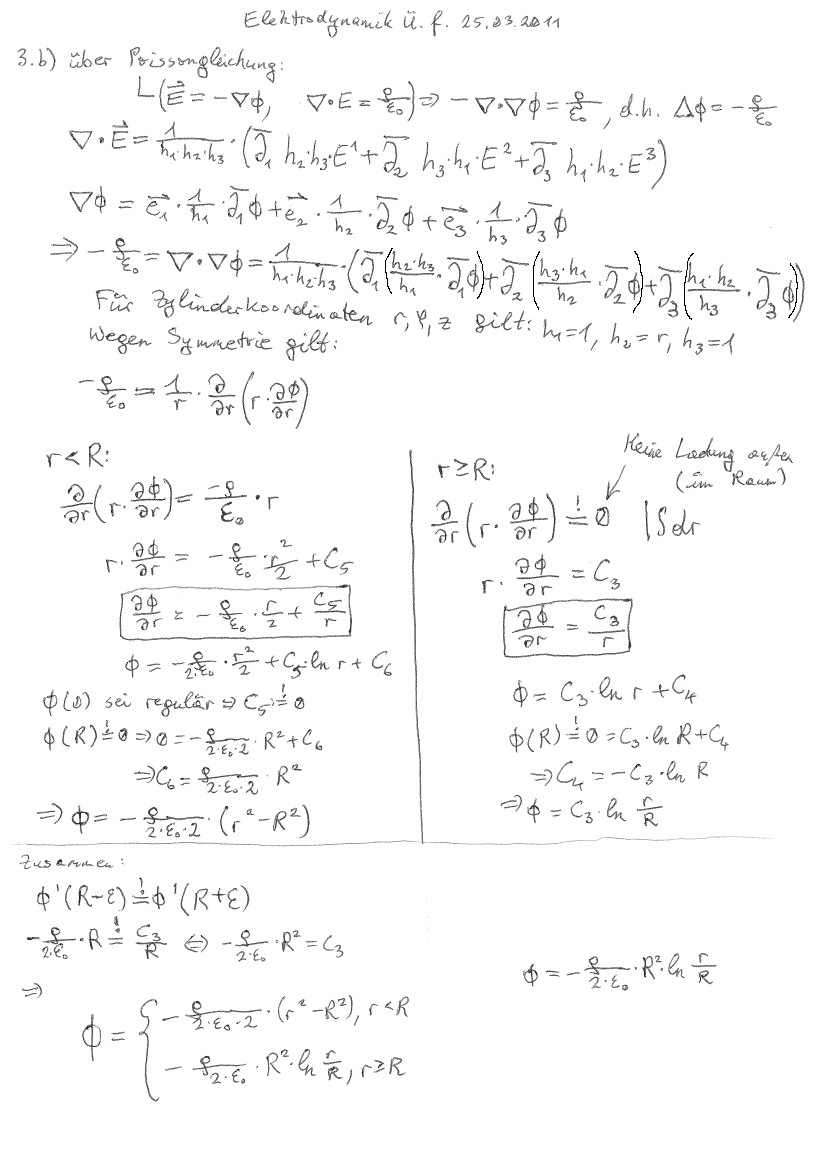 Elektrodynamik Ü. f. 25.03.2011
3.b) über Poissongleichung:
(E⃗ = -∇ϕ, ∇·E = ρ/ε₀) ⇒ -∇·∇ϕ = ρ/ε₀, d.h. Δϕ = -ρ/ε₀
∇·E⃗ = 1/(h₁·h₂·h₃) · (∂̅₁ h₂·h₃·E¹ + ∂̅₂ h₃·h₁·E² + ∂̅₃ h₁·h₂·E³)
∇ϕ = e⃗₁ · 1/h₁ · ∂̅₁ϕ + e⃗₂ · 1/h₂ · ∂̅₂ϕ + e⃗₃ · 1/h₃ · ∂̅₃ϕ
⇒ -ρ/ε₀ = ∇·∇ϕ = 1/(h₁·h₂·h₃) · (∂̅₁(h₂·h₃/h₁ · ∂̅₁ϕ) + ∂̅₂(h₃·h₁/h₂ · ∂̅₂ϕ) + ∂̅₃(h₁·h₂/h₃ · ∂̅₃ϕ))
Für Zylinderkoordinaten r, φ, z gilt: h₁=1, h₂=r, h₃=1
Wegen Symmetrie gilt:
-ρ/ε₀ = 1/r · ∂/∂r (r · ∂ϕ/∂r)
r < R:
∂/∂r (r · ∂ϕ/∂r) = -ρ/ε₀ · r
r · ∂ϕ/∂r = -ρ/ε₀ · r²/2 + C₅
∂ϕ/∂r = -ρ/ε₀ · r/2 + C₅/r
ϕ = -ρ/(2·ε₀) · r²/2 + C₅·ln r + C₆
ϕ(0) sei regulär ⇒ C₅ =! 0
ϕ(R) =! 0 ⇒ 0 = -ρ/(2·ε₀·2) · R² + C₆
⇒ C₆ = ρ/(2·ε₀·2) · R²
⇒ ϕ = -ρ/(2·ε₀·2) · (r² - R²)
r ≥ R:
Keine Ladung außen
(im Raum)
∂/∂r (r · ∂ϕ/∂r) =! 0 |∫dr
r · ∂ϕ/∂r = C₃
∂ϕ/∂r = C₃/r
ϕ = C₃·ln r + C₄
ϕ(R) =! 0 = C₃·ln R + C₄
⇒ C₄ = -C₃·ln R
⇒ ϕ = C₃·ln r/R
Zusammen:
ϕ'(R-ε) =! ϕ'(R+ε)
-ρ/(2·ε₀) · R =! C₃/R ⇔ -ρ/(2·ε₀) · R² = C₃
ϕ = -ρ/(2·ε₀) · R²·ln r/R
⇒
ϕ = { -ρ/(2·ε₀·2) · (r² - R²), r < R
-ρ/(2·ε₀) · R²·ln r/R, r ≥ R